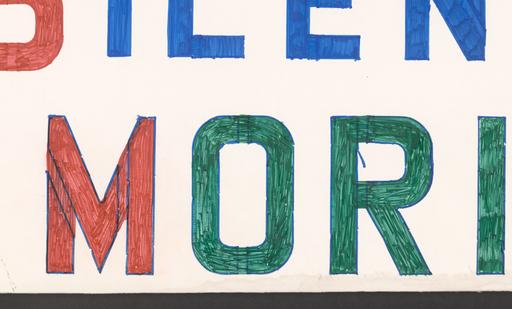 SILEN
MORI